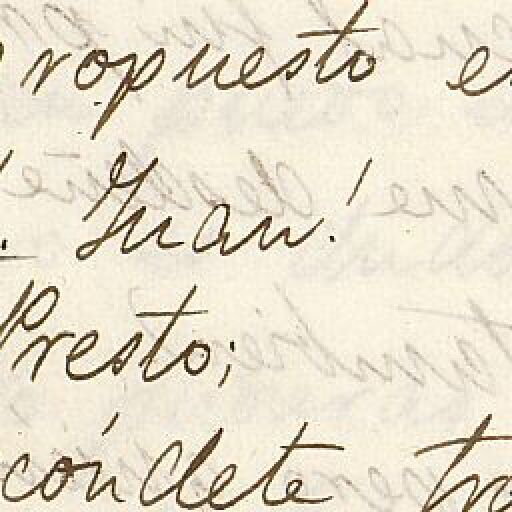 ropuesto e
. Juan!
Presto;
cóndete tra